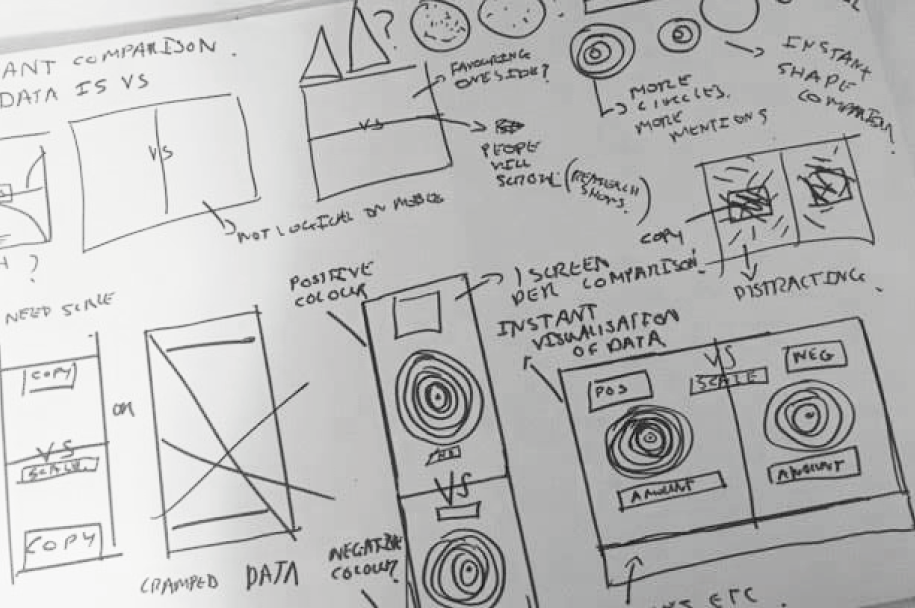 ANT COMPARISON.
DATA IS VS
VS
NOT LOGICAL ON MOBILE
?
VS
FAVOURING
ONE SIDE?
PEOPLE
WILL
SCROLL (RESEARCH
SHOWS.)
?
MORE
CIRCLES.
MORE
MENTIONS
INSTANT
SHAPE
COMPARISON?
COPY
DISTRACTING.
?
NEED SCALE
COPY
VS
SCALE
COPY
OR
CRAMPED DATA
POSITIVE
COLOUR
1 SCREEN
PER COMPARISON.
VS
NEGATIVE
COLOUR?
INSTANT
VISUALISATION
OF DATA
POS
VS
SCALE
NEG
AMOUNT
AMOUNT
ETC